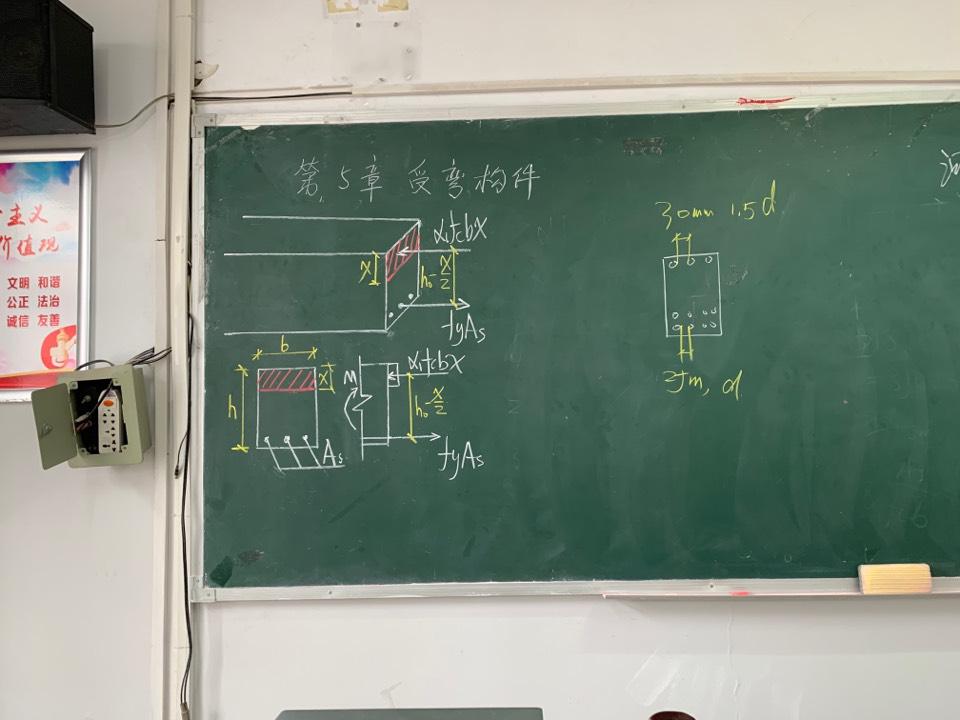 主义
价值观
文明 和谐
公正 法治
诚信 友善
第5章 受弯构件
α₁fcbx
x
h₀-x/2
fyAs
b
h
x
As
M
α₁fcbx
h₀-x/2
fyAs
30mm 1.5d
25m, d